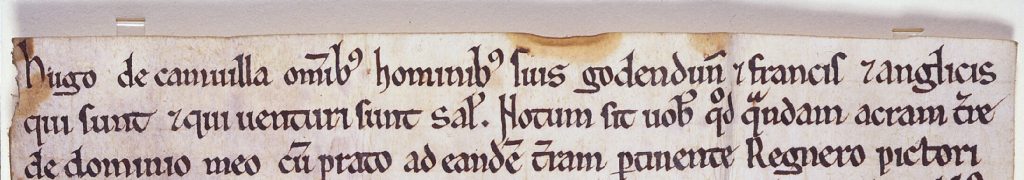 hugo de camuilla omībꝰ hominibꝰ suis godendun̄ ⁊ francis ⁊ anglicis
qui sunt ⁊ qui uenturi sunt sal̄. Notum sit uob̄ qd̄ quandam acram t̄re
de dominio meo cū prato ad eandē t̄ram ꝑtinente Regnero pictori